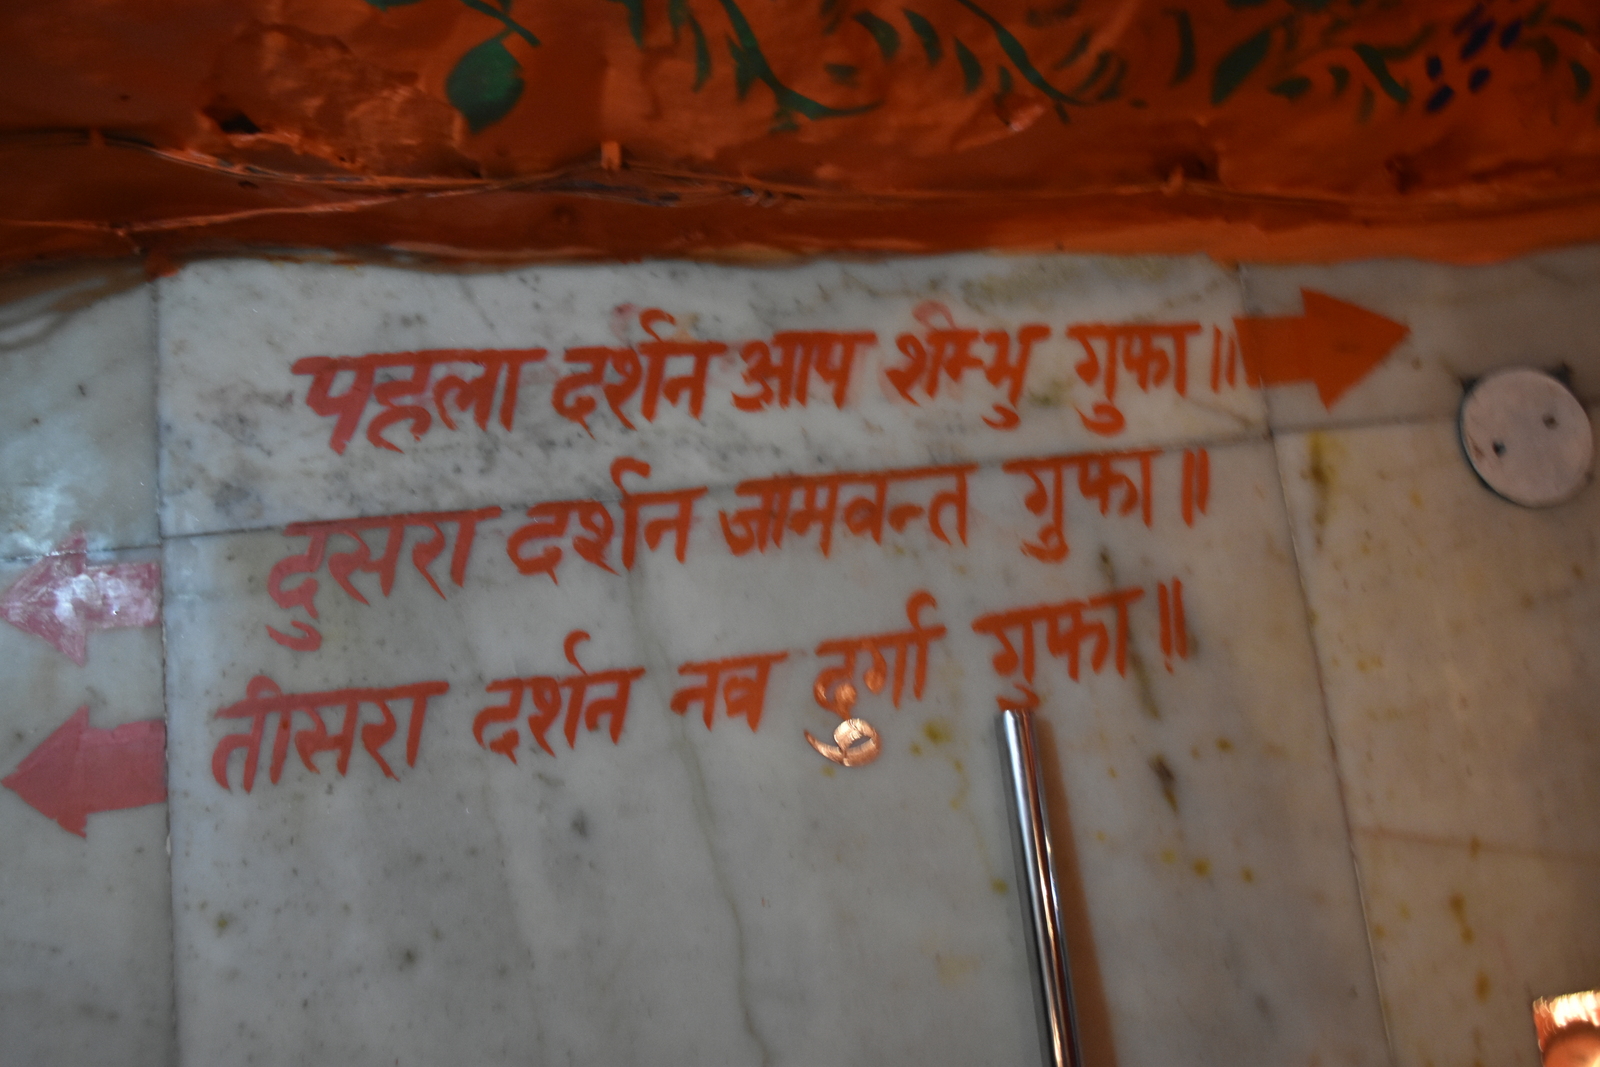 पहला दर्शन आप शम्भु गुफा॥
दुसरा दर्शन जामवन्त गुफा॥
तीसरा दर्शन नव दुर्गा गुफा॥